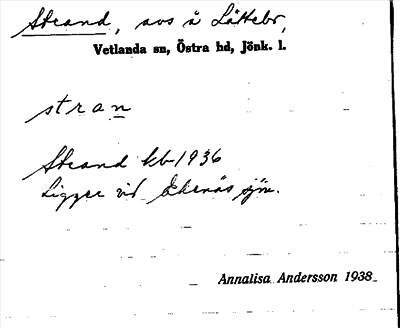 Strand, avs å Lättebo,
Vetlanda sn, Östra hd, Jönk. l.
stran
Strand kb 1936
Ligger vid Ekenäs sjön.
Annalisa Andersson 1938